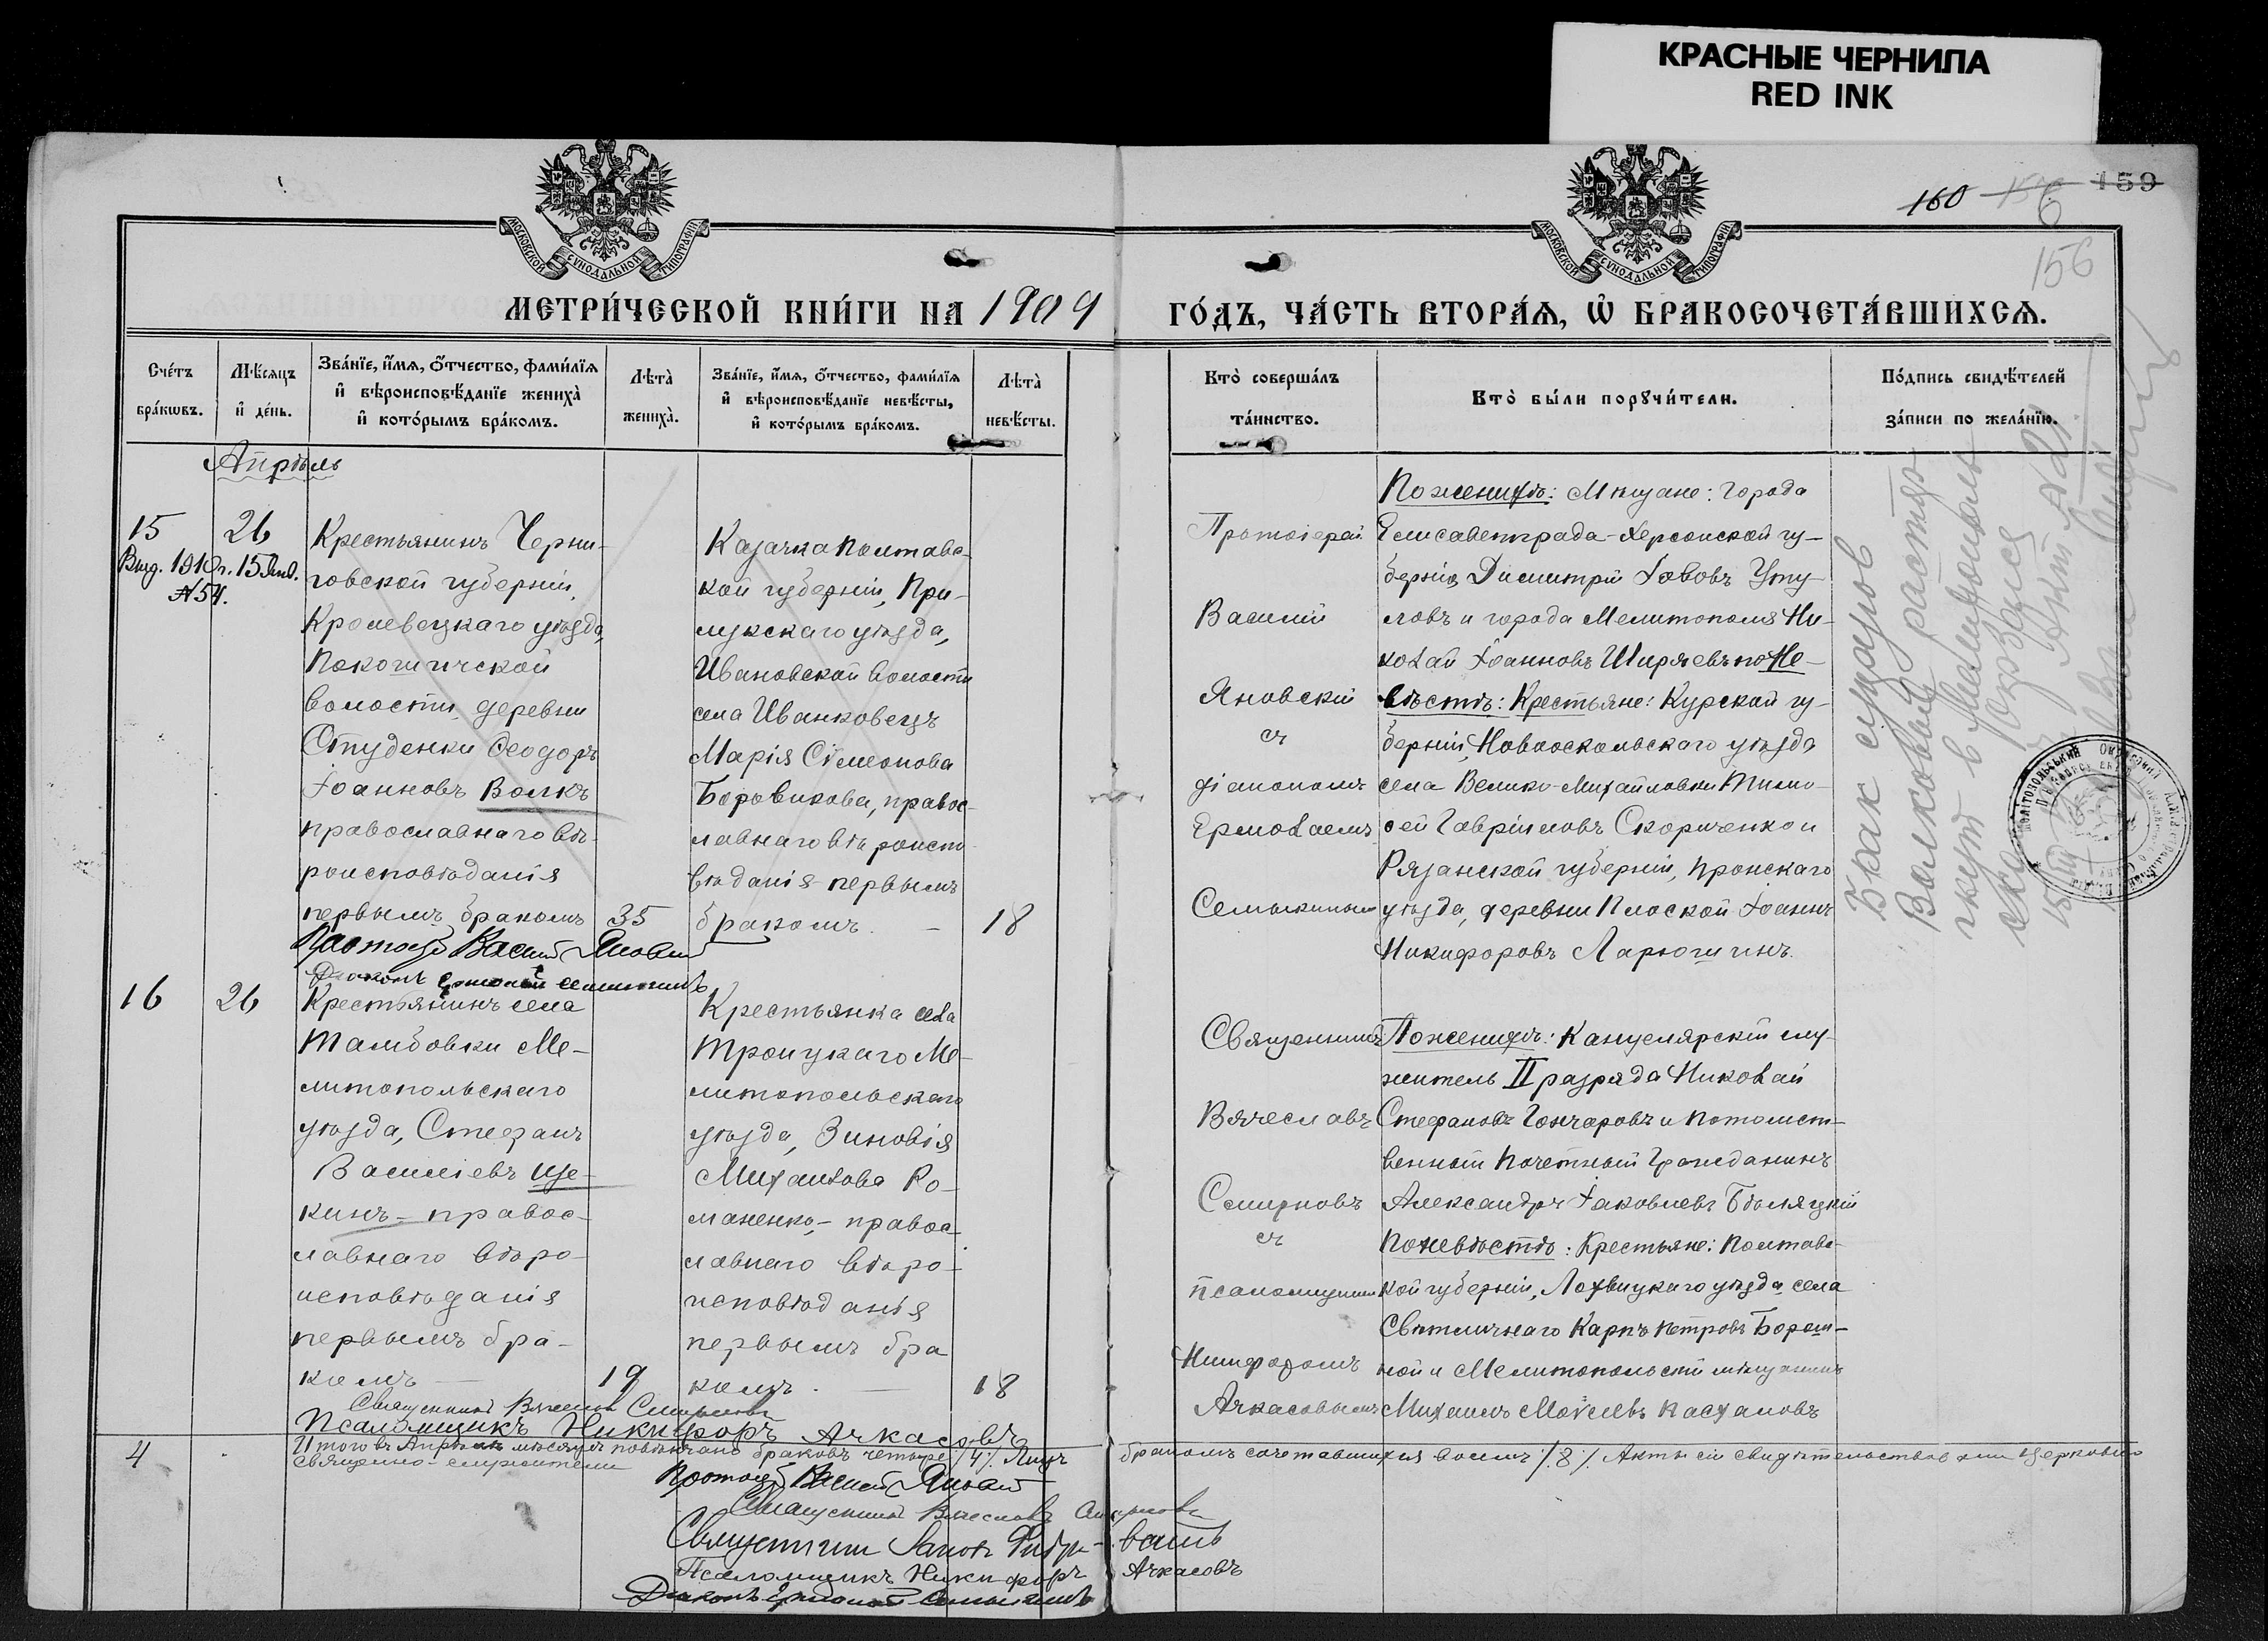 КРАСНЫЕ ЧЕРНИЛА
RED INK
160 156 159
6
156
МОСКОВСКОЙ СУНОДАЛЬНОЙ ТИПОГРАФІИ
МОСКОВСКОЙ СУНОДАЛЬНОЙ ТИПОГРАФІИ
МЕТРИ́ЧЕСКОЙ КНИ́ГИ НА 1909
ГО́ДЪ, ЧА́СТЬ ВТОРА́Ѧ, Ѽ БРАКОСОЧЕТА́ВШИХСѦ.
Сче́тъ
бра́кѡвъ.
Мѣ́сяцъ
и҆ де́нь.
Зва́нїе, и҆́мѧ, ѻ҆́тчество, фами́лїѧ
и҆ вѣроисповѣ́данїе жениха̀
и҆ кото́рымъ бра́комъ.
Лѣта̀
жениха̀.
Зва́нїе, и҆́мѧ, ѻ҆́тчество, фами́лїѧ
и҆ вѣроисповѣ́данїе невѣ́сты,
и҆ кото́рымъ бра́комъ.
Лѣта̀
невѣ́сты.
Кто̀ соверша́лъ
та́инство.
Кто̀ бы́ли порꙋчи́тели.
По́дпись свидѣ́телей
за́писи по жела́нїю.
Апрѣль
15
26
Выд. 1910 г. 15 Янв.
№ 54.
Крестьянинъ Черни-
говской губерніи,
Кролевецкаго уѣзда,
Покошичской
волости, деревни
Студенки Ѳеодоръ
Іоанновъ Волкъ
православнаго вѣ-
роисповѣданія
первымъ бракомъ
35
Казачка Полтавс-
кой губерніи, При-
лукскаго уѣзда,
Ивановской волости
села Иванковецъ
Марія Сімеонова
Боровикова, правос-
лавнаго вѣроиспо
вѣданія первымъ
бракомъ. –
18
Протоіерей Василій Яновскій
Діаконъ Ермолай Семыкинъ
Протоіерей
Василій
Яновскій
съ
діакономъ
Ермолаемъ
Семыкинымъ
По женихѣ: Мѣщане: города
Елисаветграда Херсонской гу-
берніи, Димитрій Іововъ Усту-
ловъ и города Мелитополя Ни-
колай Іоанновъ Ширяевъ по Не-
вѣстѣ: Крестьяне: Курской гу-
берніи, Новооскольскаго уѣзда
села Велико-Михайловки Тимо-
ѳей Гавріиловъ Скорченко и
Рязанской губерніи, Пронскаго
уѣзда, деревни Плоской Іоаннъ
Никифоровъ Ларюшинъ.
Брак супругов
Волковых расторг-
нут в Мелитополь-
ско
Окрзагсе
16
26
Крестьянинъ села
Тамбовки Ме-
литопольскаго
уѣзда, Стефанъ
Василіевъ Ще-
кинъ – правос-
лавнаго вѣро-
исповѣданія
первымъ бра-
комъ –
19
Крестьянка села
Троицкаго Ме-
литопольскаго
уѣзда, Зиновія
Михаилова Ро-
маненко, – правос
лавнаго вѣро-
исповѣданія
первымъ бра
комъ. –
18
Священникъ Вячеславъ Смирновъ
Псаломщикъ Никифоръ Ачкасовъ
Священникъ
Вячеславъ
Смирновъ
съ
псаломщикомъ
Никифоромъ
Ачкасовымъ
По женихѣ: Канцелярскій слу-
житель II разряда Николай
Стефановъ Гончаровъ и потомст-
венный Почетный Гражданинъ
Александръ Іаковлевъ Бѣляцкій
По невѣстѣ: Крестьяне: Полтавс-
кой губерніи, Лохвицкаго уѣзда, села
Свѣтличнаго Карпъ Петровъ Бореш-
ной и Мелитопольскій мѣщанинъ
Михаилъ Моѵсеевъ Касхановъ
4
Итого въ Апрѣлѣ мѣсяцѣ повѣнчано браковъ четыре /4/. Лицъ бракомъ сочетавшихся восемь /.8./. Акты сіи свидѣтельствовали Церковно
священно-служители
Протоіерей Василій Яновскій
Священникъ Вячеславъ Смирновъ
Псаломщикъ Никифоръ Ачкасовъ
Діаконъ Ермолай Семыкинъ